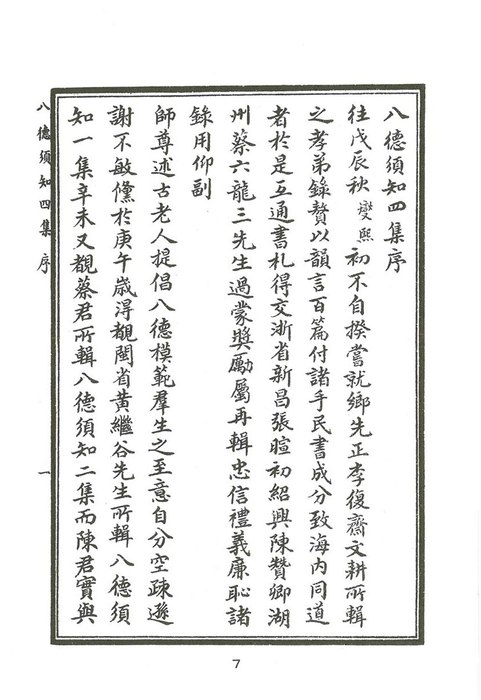 八德須知四集序
往戊辰秋燮熙初不自揆嘗就鄉先正李復齋文耕所輯
之孝弟錄贅以韻言百篇付諸手民書成分致海內同道
者於是互通書札得交浙省新昌張暄初紹興陳贊卿湖
州蔡六龍三先生過蒙獎勵屬再輯忠信禮義廉恥諸
錄用仰副
師尊述古老人提倡八德模範羣生之至意自分空疎遜
謝不敏儻於庚午歲得覩閩省黃繼谷先生所輯八德須
知一集辛未又覩蔡君所輯八德須知二集而陳君實與
八德須知四集 序
一
7